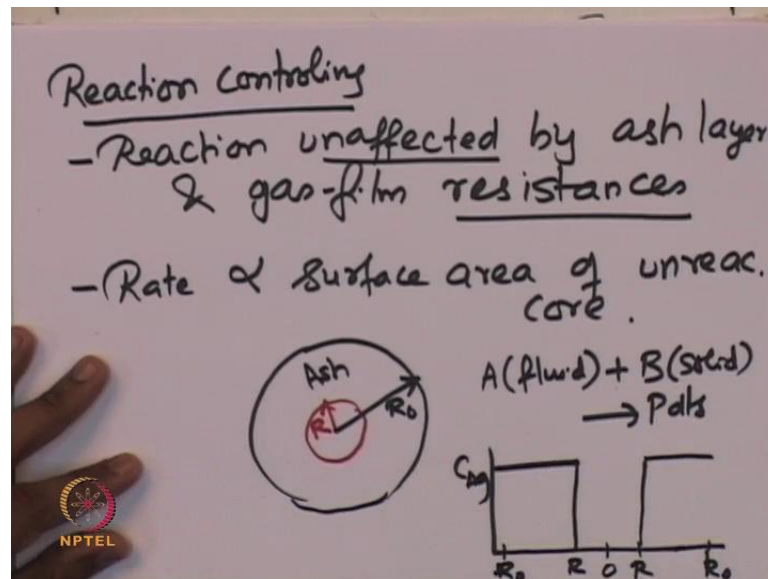 Reaction Controling
- Reaction unaffected by ash layer
& gas-film resistances
- Rate ∝ surface area of unreac.
core.
Ash
R
R₀
A(fluid) + B(solid)
→ Pdts
C_Ag
R₀ R 0 R R₀
NPTEL